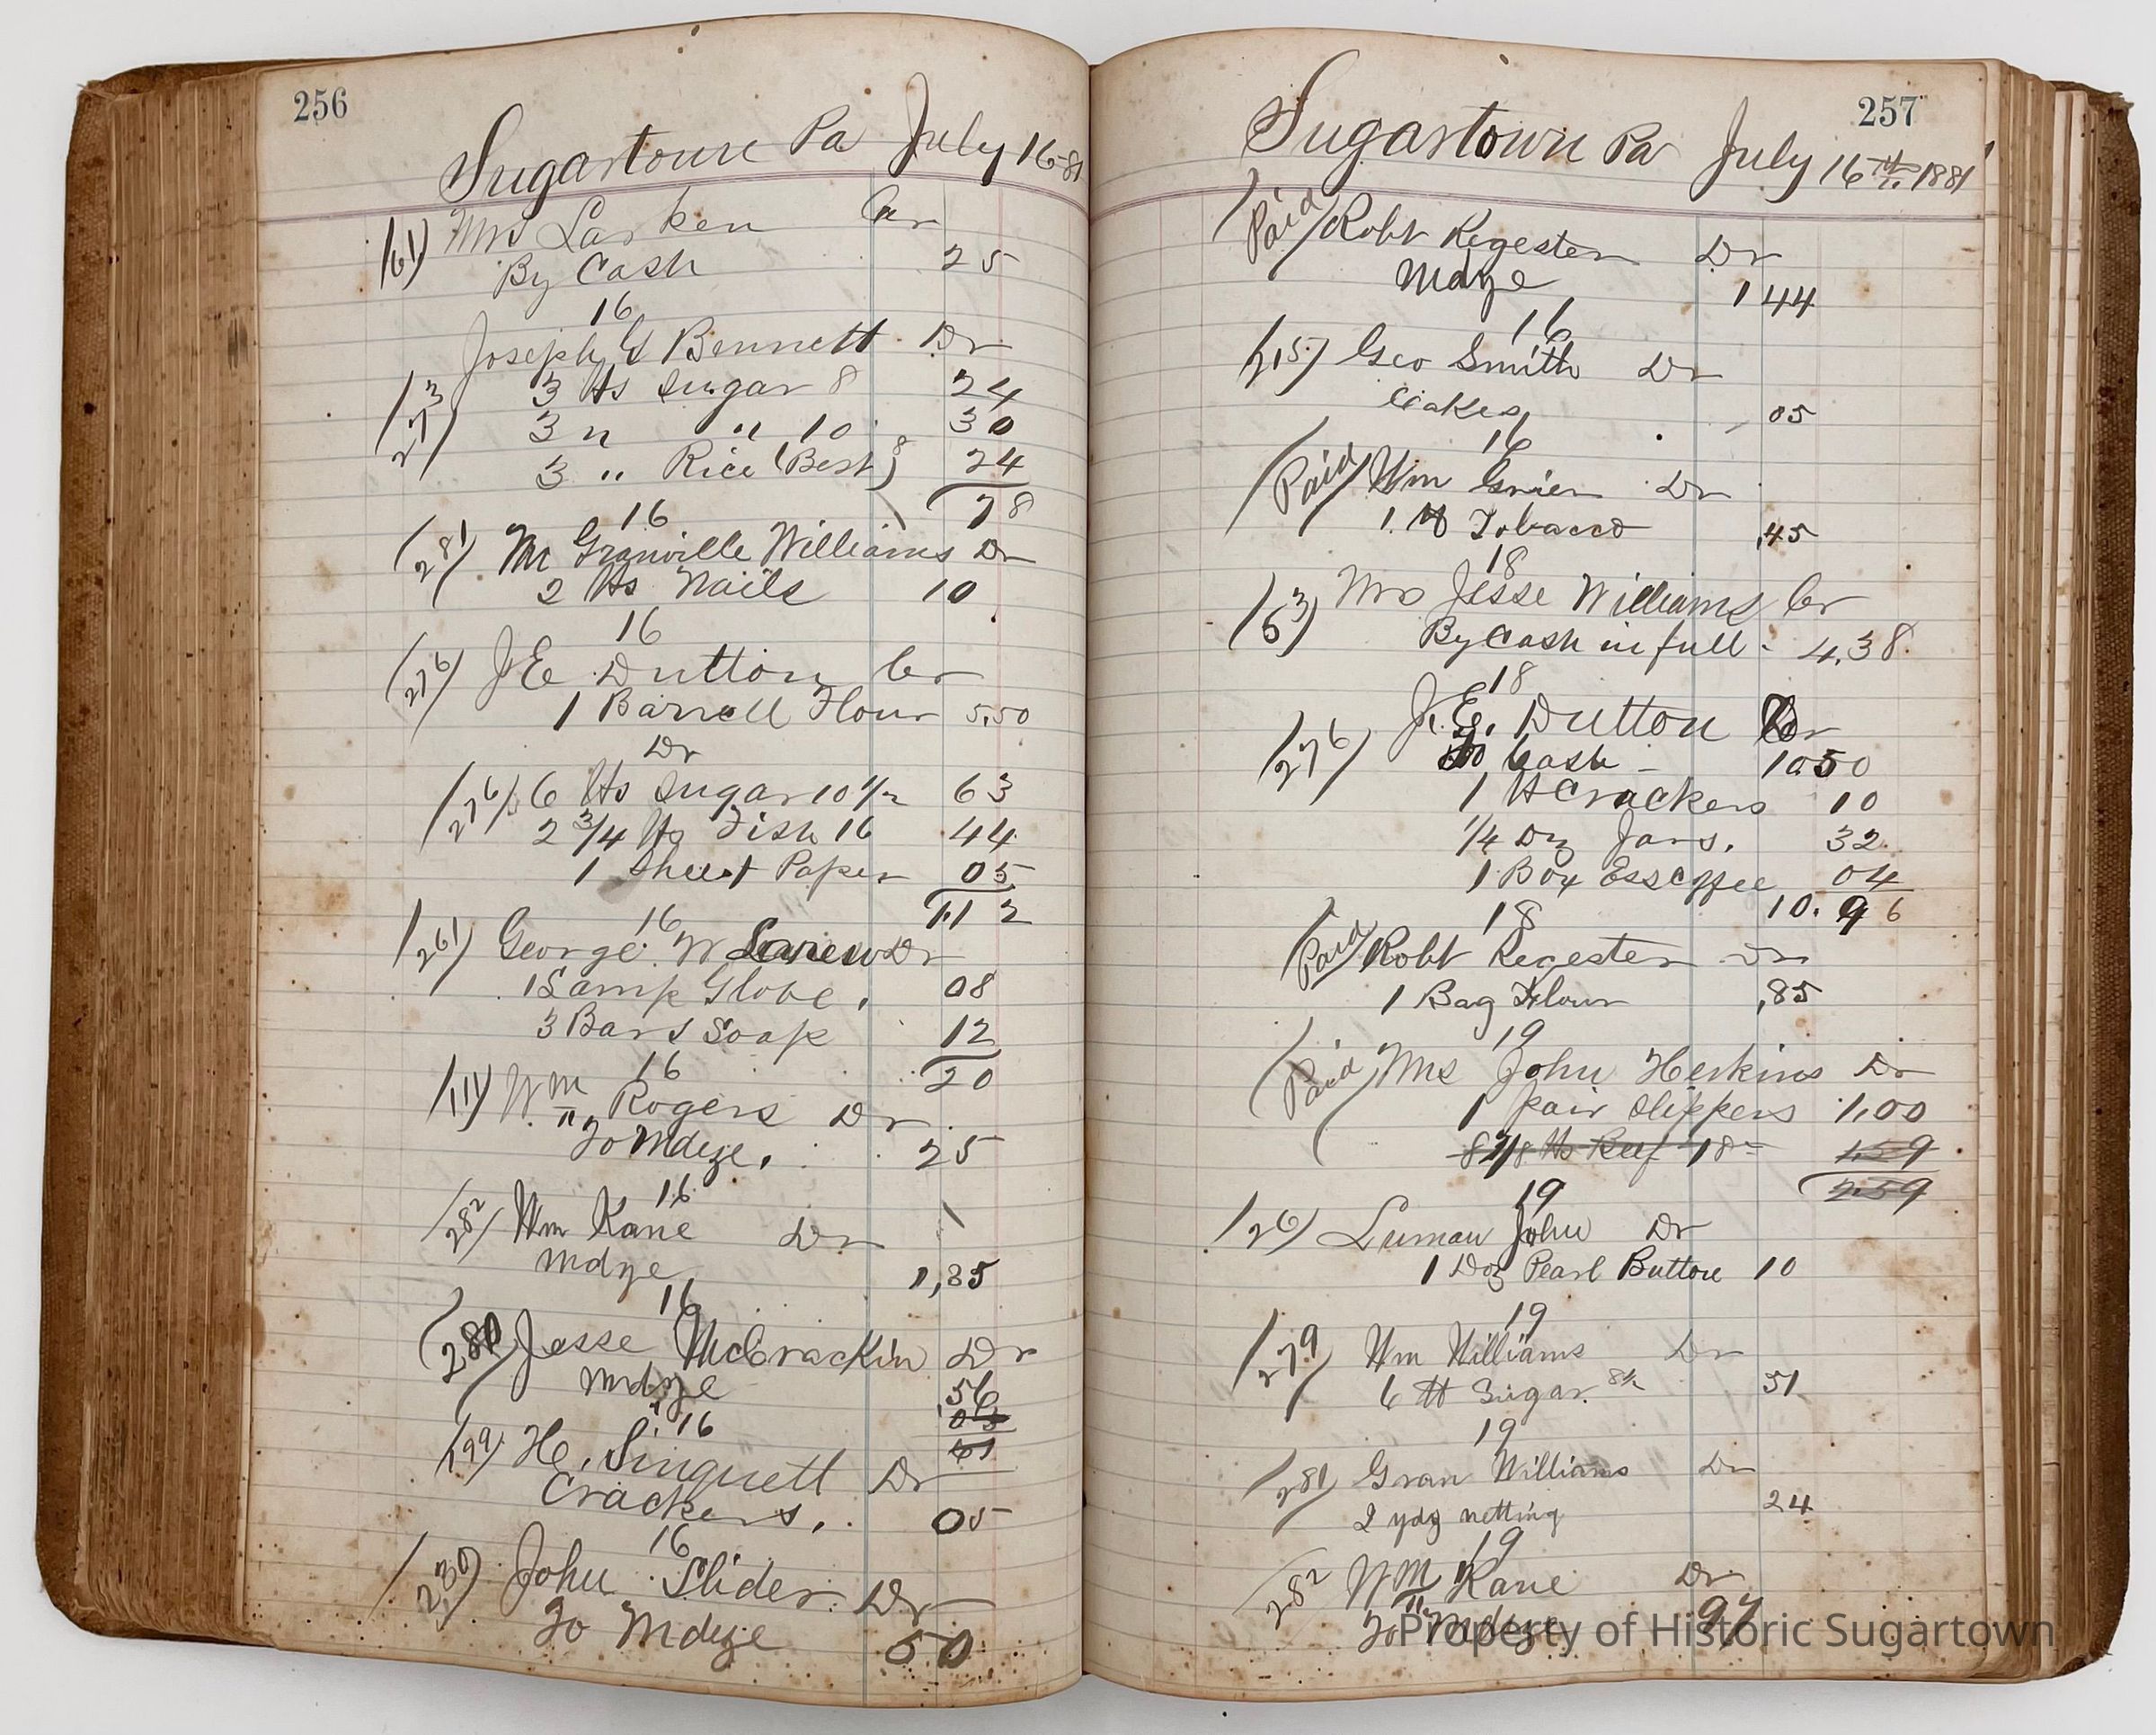 256
Sugartown Pa July 16-81
(61) Mrs Larken Cr
By Cash 25
16
Joseph G Bennett Dr
(273) 3 lbs Sugar 8 24
3 " " 10 30
3 " Rice (Best) 8 24
78
16
(281) Mr Granville Williams Dr
2 lbs Nails 10
16
(276) J E Dutton Cr
1 Barrell Flour 5.50
Dr
(276) 6 lbs Sugar 10 1/2 63
2 3/4 lbs Fish 16 44
1 Sheet Paper 05
1.12
16
(261) George W Dr
1 Lamp Globe. 08
3 Bars Soap 12
20
16
(111) Wm Rogers Dr
To Mdze. 25
16
(282) Wm Kane Dr
Mdze 1,35
16
(280) Jesse McCrackin Dr
Mdze ,56
05
61
16
(199) He. Singuett Dr
Crackers. 05
16
(230) John Slider Dr
To Mdze 50
257
Sugartown Pa July 16th 1881
(Paid) Robt Regester Dr
Mdze 1 44
16
(215) Geo Smith Dr
Cakes 05
16
(Paid) Wm Grier Dr
1 lb Tobacco .45
18
(63) Mrs Jesse Williams Cr
By Cash in full - 4.38
18
(276) J. E. Dutton Dr
To Cash - 10 50
1 lb Crackers 10
1/4 Dz Jars. 32
1 Box Esscoffee 04
10.96
18
(Paid) Robt Regester Dr
1 Bag Flour ,85
19
(Paid) Mrs John Herkins Dr
1 pair Slippers 1,00
8 7/8 lbs Beef 18 1.59
2.59
19
(26) Luman John Dr
1 Doz Pearl Button 10
19
(279) Wm Williams Dr
6 lb Sugar 8 1/2 51
19
(281) Gran Williams Dr
2 yds netting 24
19
282 Wm Kane Dr
To Mdze 97
Property of Historic Sugartown